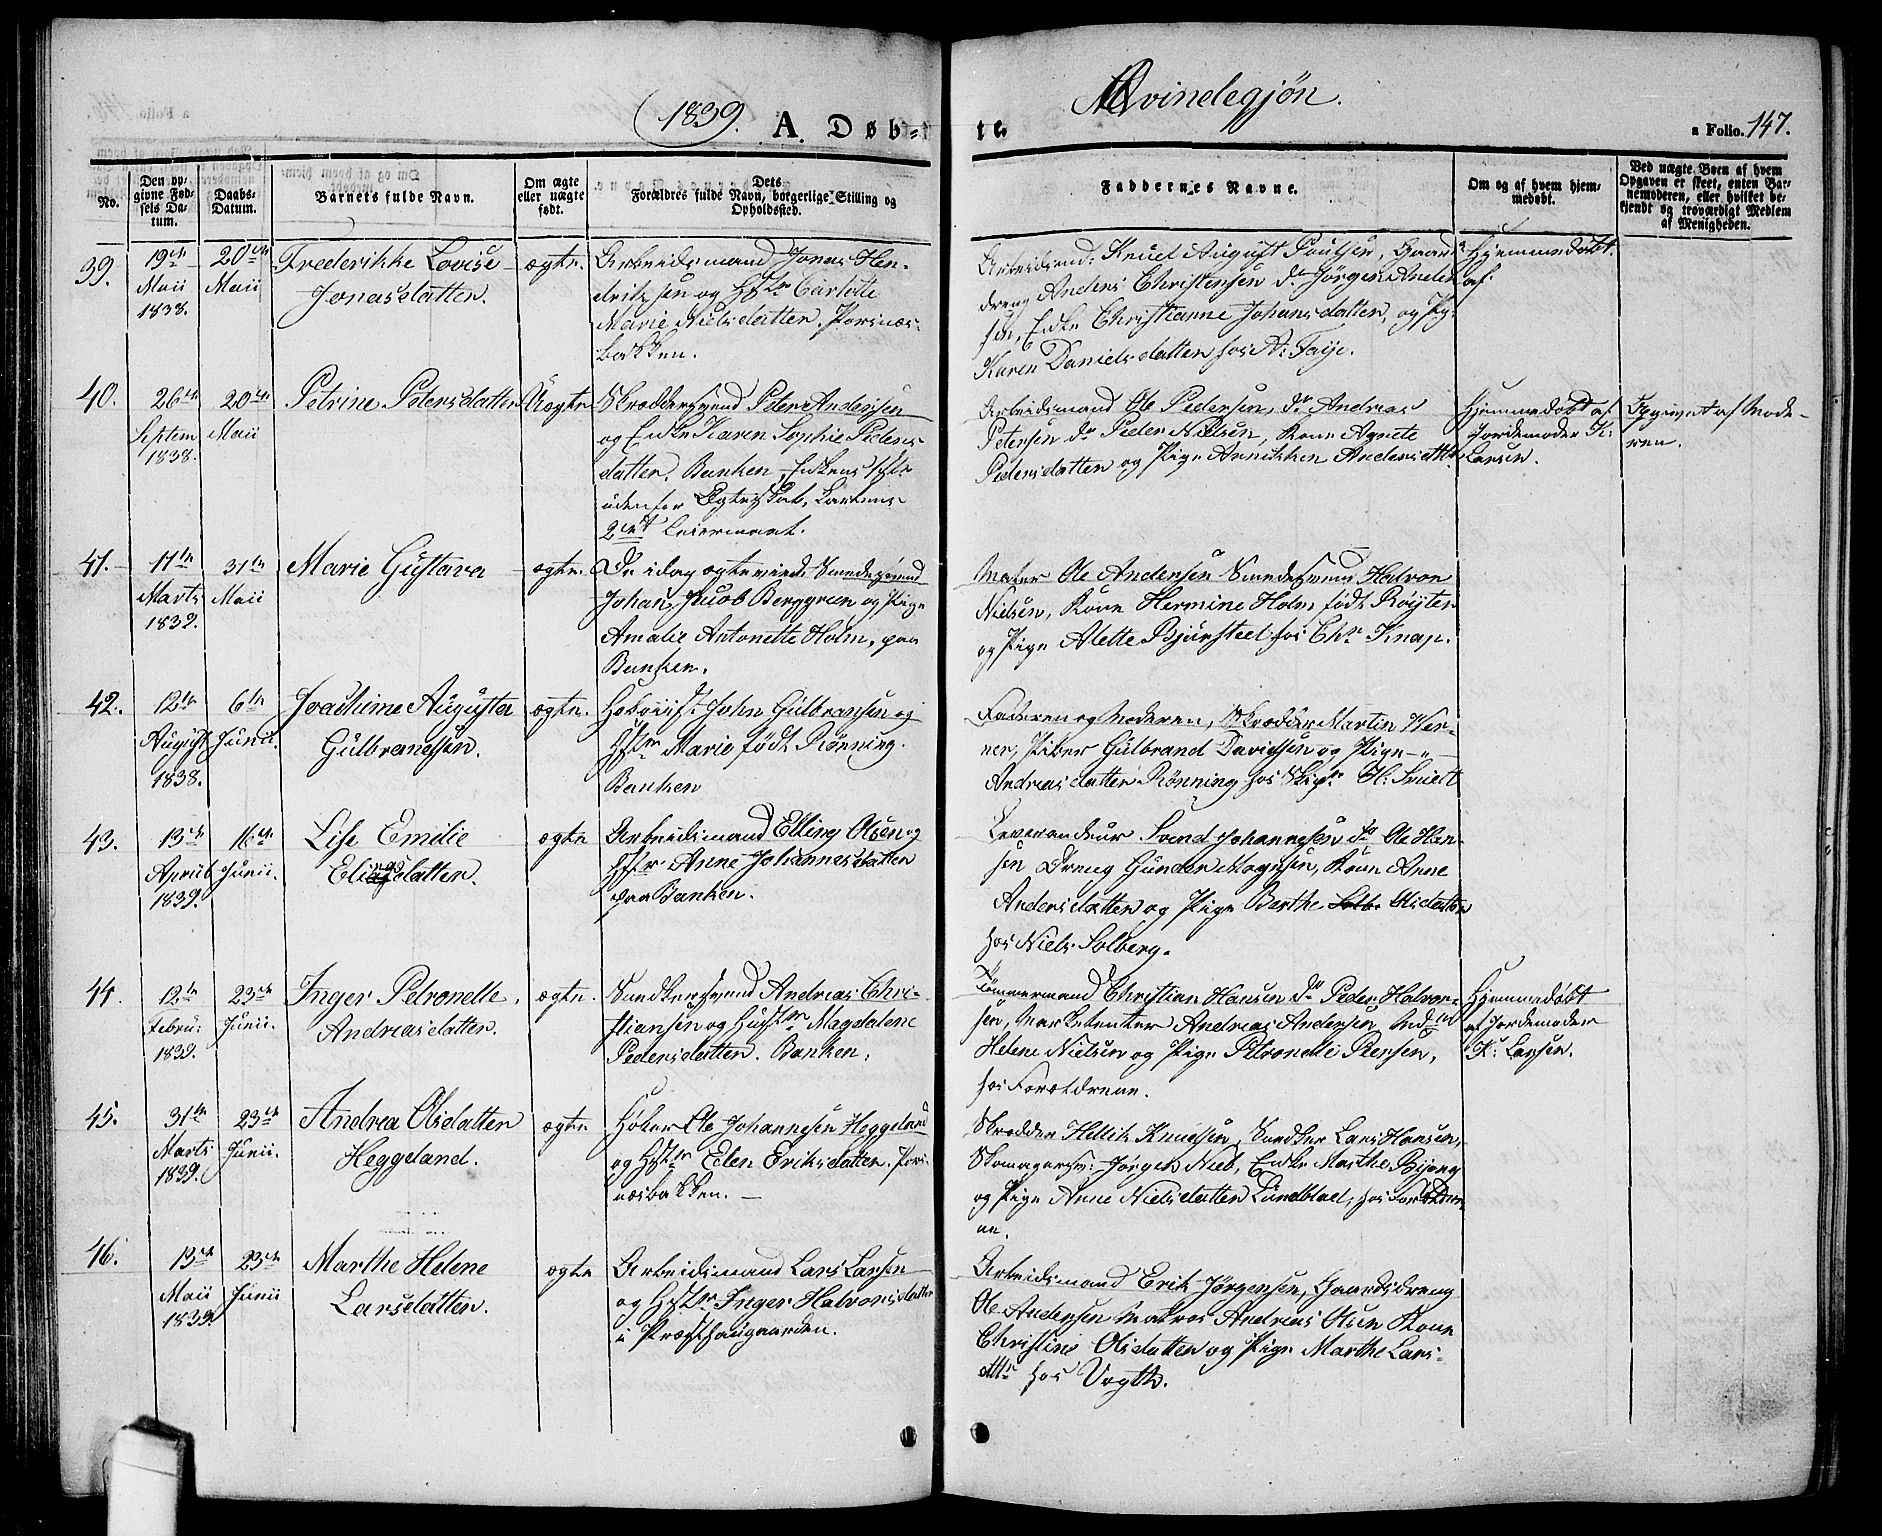 1839. A. Døb-
te. Qvindekjøn. a Folio. 147.
No.
Den op-
givne Fød-
sels Da-
tum.
Daabs-
Datum.
Barnets fulde Navn.
Om ægte
eller uægte
født.
Dets
Forældres fulde Navn, borgerlige Stilling og
Opholdssted.
Faddernes Navne.
Om og af hvem hjem-
medøbt.
Ved uægte Børn af hvem
Opgaven er skeet, enten Bar-
nemoderen, eller hvilket be-
kjendt og troværdigt Medlem
af Menigheden.
39.
19de
Maii
1838.
20de
Maii
Frederikke Lovise
Jonasdatter.
ægte.
Arbeidsmand Jonas Hen-
driksen og Hstr Carlotte
Marie Nielsdatter. Porsnæs-
bakken.
Arbeidsmd. Knud August Poulsen, Gaards-
dreng Anders Christensen do Jørgen Ander-
sen, Enke Christianne Johansdatter, og Pig.
Karen Danielsdatter hos A: Faye.
Hjemmedøbt.
af:
40.
26de
Septem
1838.
20de
Maii
Petrine Petersdatter
Uægte
Skræddersvend Peter Andersen
og Enke Karen Sophie Peders-
datter. Banken, Enkens
udenfor Ægteskab,
2det Leiermaal.
Arbeidsmand Ole Pedersen, do Andreas
Petersen do Peder Nielsen, Kone Agnete
Pedersdatter og Pige Annikken Andersdttr.
Hjemmedøbt af
Jordemoder K:
Larsen.
Opgivet af Mode-
ren.
41.
17de
Marts
1839.
31te
Maii
Marie Gustava
ægte.
De idag ægteviede Smedesvend
Johan Jacob Berggren og Pige
Amalie Antonette Holm, paa
Banken.
Maler Ole Andersen Smedesvend Halvor
Nielsen, Kone Hermine Holm født Røyter
og Pige Alette Bjursteet hos Chr Knap.
42.
12te
August
1838.
6te
Junii.
Joachime Augusta
Gulbrandsen.
ægte.
John Gulbransen og
Hstr Marie født Rønning.
Banken
Faderen og Moderen, Skrædder Martin Wer-
ner, Piber Gulbrand Davidsen og Pige — „ —
Andreasdatter Rønning hos Skipr H: Smidt
43.
13de
April
1839.
16de
Junii.
Lise Emilie
Elingsdatter.
ægte
Arbeidsmand Elling Olsen og
Hstr Anne Johannesdatter
paa Banken.
Leverandeur Svend Johannesen do Ole Han-
sen Dreng Gunder Mogensen, Kone Anne
Andersdatter og Pige Berthe Solb. Olsdatter
hos Niels Solberg.
44.
12te
Febru:
1839.
23de
Junii.
Inger Petronelle
Andreasdatter.
ægte.
Snedkersvend Andreas Chri-
stiansen og Hustr Magdalene
Pedersdatter. Banken.
Tømmermand Christian Hansen do Peder Halvor-
sen, Marketenter Andreas Andersen, Mad.
Helene Nielsen og Pige Petronelle Bensen,
hos Forældrene.
Hjemmedøbt
af Jordemoder
K: Larsen.
45.
31te
Marts
1839.
23de
Junii.
Andrea Olsdatter
Heggeland.
ægte
Høker Ole Johannesen Heggeland
og Hstr Elen Eriksdatter. Pors-
næsbakken. —
Skrædder Hellik Knudsen, Snedker Lars Hansen,
Skomagersv: Jørgen Nieb, Enke Marthe Bjong
og Pige Anne Nielsdatter Lundblad, hos Foreldre-
ne.
46.
13de
Maii
1839.
23de
Junii
Marthe Helene
Larsdatter.
ægte
Arbeidsmand Lars Larsen
og Hstr Inger Halvorsdatter
i Præsthaugaarden.
Arbeidsmand Erik Jørgensen, Gaardsdreng
Ole Andersen Matros Andreas Olsen Kone
Christine Olsdatter og Pige Marthe Lars-
dttr hos Vogth.